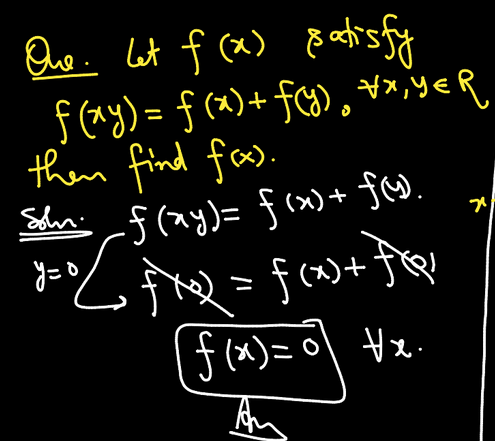 Que. Let f(x) satisfy
f(xy) = f(x) + f(y), ∀x, y ∈ R
then find f(x).
Soln. f(xy) = f(x) + f(y).
y=0 f(0) = f(x) + f(0)
f(x) = 0 ∀x.
Ans
x